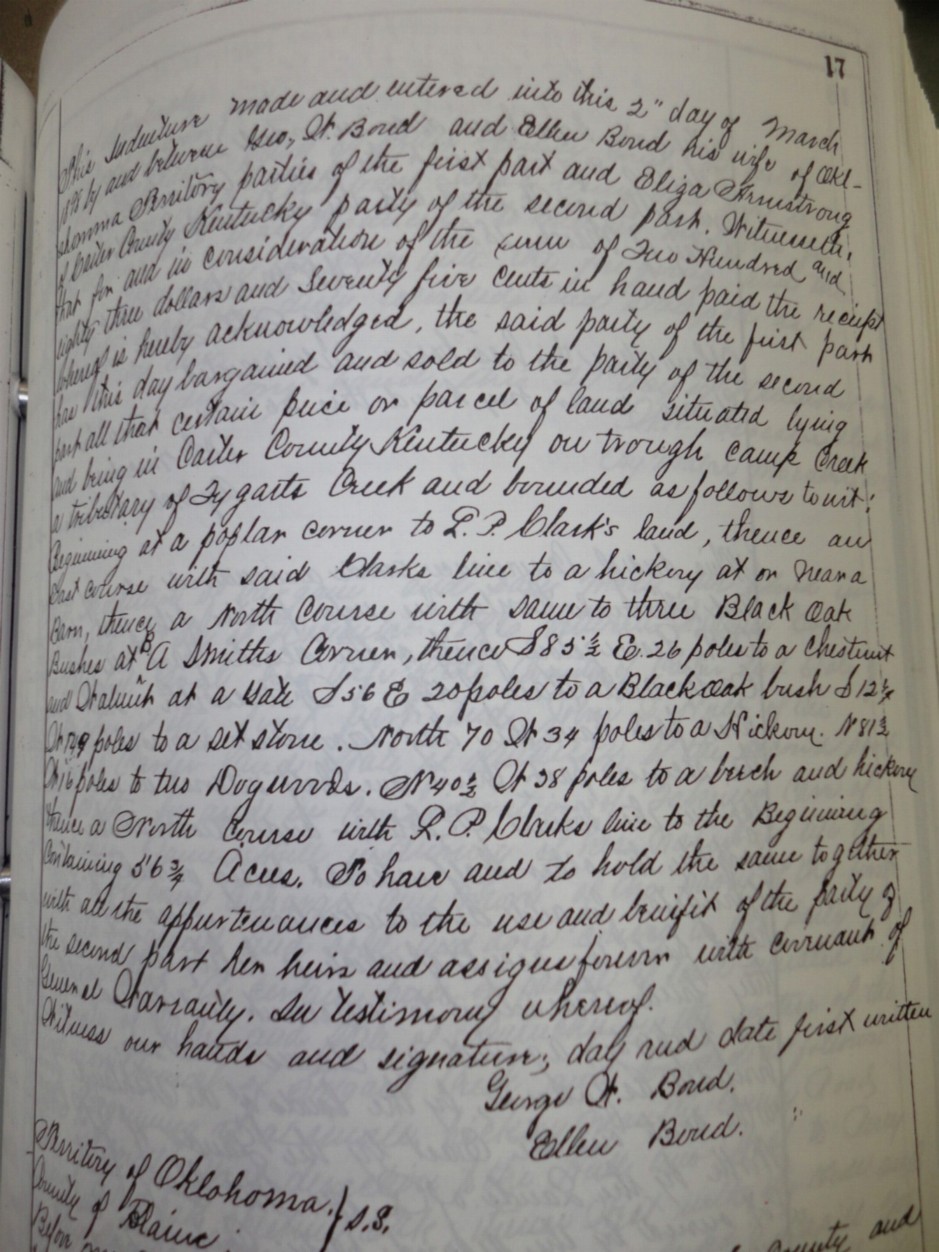 17
This Indenture made and entered into this 2" day of March
by and between Geo, W. Bond and Ellen Bond his wife of Okl-
ahomma Territory parties of the first part and Eliza Armstrong
of Carter County Kentucky party of the second part. Witnesseth,
that for and in consideration of the sum of Two Hundred and
eighty three dollars and Seventy five cents in hand paid the receipt
whereof is hereby acknowledged, the said party of the first part
has this day bargained and sold to the party of the second
part all that certain piece or parcel of land situated lying
and being in Carter County Kentucky on trough camp Creek
a tributary of Tygarts Creek and bounded as follows to wit:
Beginning at a poplar corner to L. P. Clark's land, thence an
East course with said Clarks line to a hickory at or near a
Barn, thence a North Course with same to three Black Oak
Bushes at B A Smiths Corner, thence S 85 ½ E. 26 poles to a Chestnut
and Walnut at a Gate S 56 E 20 poles to a Black Oak bush S 12 ½
W poles to a set stone. North 70 W 34 poles to a Hickory. N 81 ½
W 16 poles to two Dogwoods. N 40 ½ W 38 poles to a beech and hickory
thence a North Course with L. P. Clarks line to the Beginning
Containing 56 ¾ Acres. To have and to hold the same together
with all the appurtenances to the use and benifit of the party of
the second part her heirs and assigns forever with covenant of
General Warranty. In testimony whereof.
Witness our hands and signature, day and date first written
George W. Bond.
Ellen Bond.
Territory of Oklohoma. } S.S.
County of Blaine
Before
County and